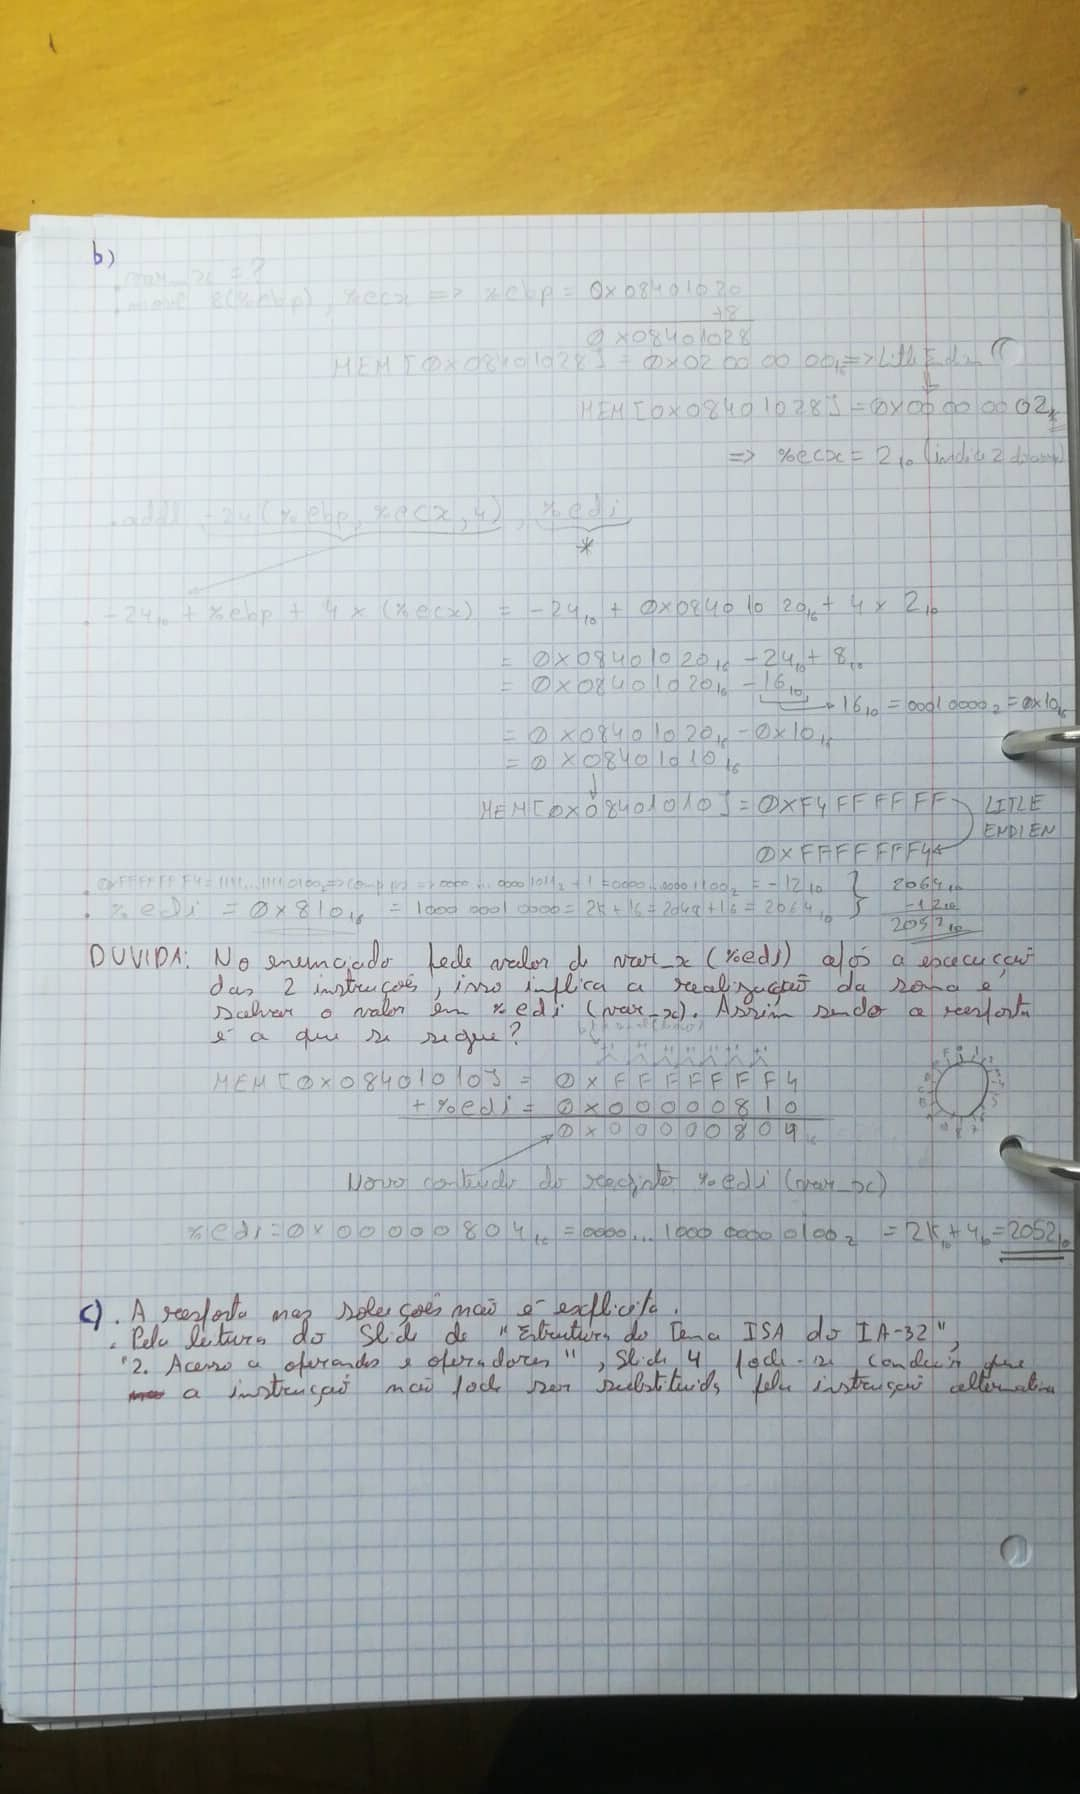 b)
. var_x = ?
. movl 8(%ebp), %ecx => %ebp = 0x08401020
+8
0x08401028
MEM[0x08401028] = 0x02 00 00 00₁₆ => Little Endian
MEM[0x08401028] = 0x00 00 00 02₁₆
=> %ecx = 2₁₀ (indica 2
. addl -24(%ebp, %ecx, 4), %edi
*
. -24₁₀ + %ebp + 4 x (%ecx) = -24₁₀ + 0x0840 10 20₁₆ + 4 x 2₁₀
= 0x08401020₁₆ - 24₁₀ + 8₁₀
= 0x08401020₁₆ - 16₁₀
16₁₀ = 0001 0000₂ = 0x10₁₆
= 0x08401020₁₆ - 0x10₁₆
= 0x08401010₁₆
MEM[0x08401010] = 0xF4 FF FF FF
LITLE
ENDIEN
0xFFFFFFF4
. 0xFFFFFFF4 = 1111...1111 0100₂ => => 0000...0000 1011₂ + 1 = 0000...0000 1100₂ = -12₁₀ } 2064₁₀
. %edi = 0x810₁₆ = 1000 0001 0000 = 2K + 16 = 2048 + 16 = 2064₁₀ } -12₁₀
2052₁₀
DUVIDA: No enunciado pede valor de var_x (%edi) após a execução
das 2 instruções, isso implica a realização da soma e
salvar o valor em %edi (var_x). Assim sendo a resposta
é a que se segue?
+1 +1 +1 +1 +1 +1 +1
MEM[0x08401010] = 0xFFFFFFF4
+ %edi = 0x00000810
0x00000804₁₆
Novo conteúdo do registo %edi (var_x)
%edi = 0x00000804₁₆ = 0000...1000 0000 0100₂ = 2K₁₀ + 4₁₀ = 2052₁₀
c) . A resposta nas soluções não é explicita.
. Pela leitura do Slide de "Estrutura do Tema ISA do IA-32",
"2. Acesso a operandos e operadores", Slide 4 pode-se concluir que
a instrução não pode ser substituida pela instrução alternativa